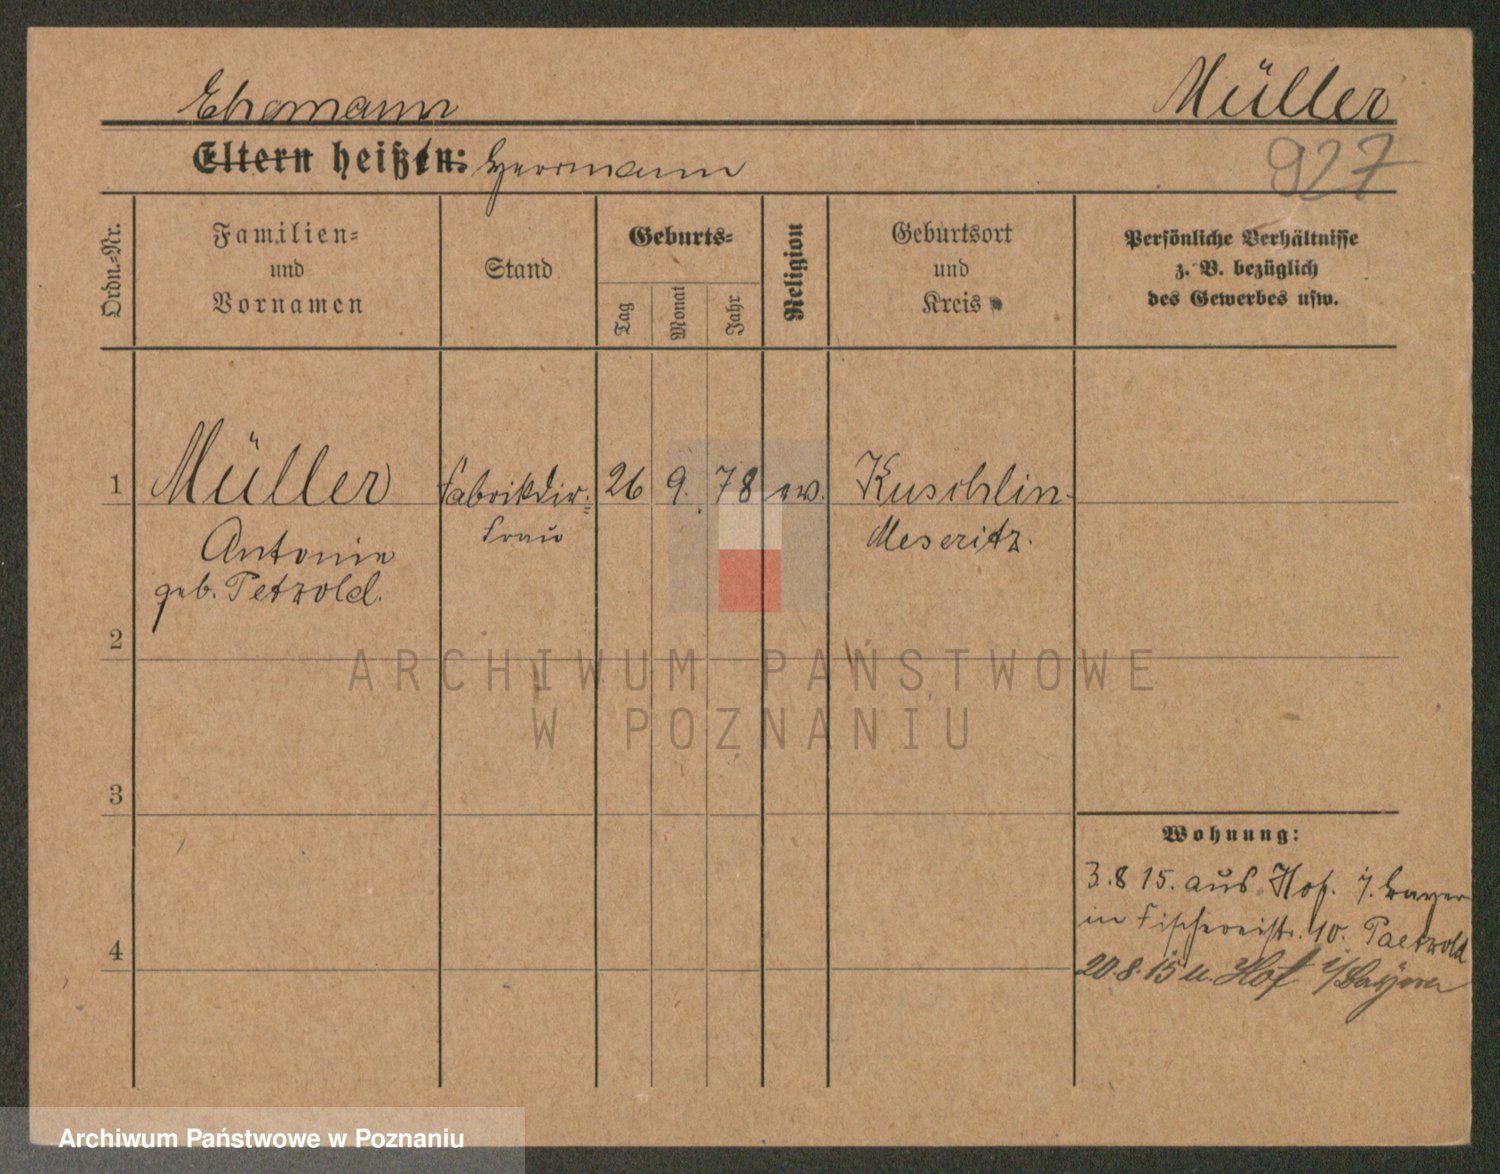 Ehemann Müller
Eltern heißen: Herrmann 927
Ordn.-Nr.
Familien- und Vornamen
Stand
Geburts-
Tag
Monat
Jahr
Religion
Geburtsort und Kreis
Persönliche Verhältnisse
z. B. bezüglich
des Gewerbes usw.
1 Müller Fabrikdir.= 26 9. 78 ev. Kuschlin
Antonie frau Meseritz.
geb. Petzold.
2
3
4
Wohnung:
3.8 15. aus Hof. i. Bayer
in Fischereistr. 10. Paetzold
20.8.15 u. Hof i/Bayern
ARCHIWUM PAŃSTWOWE
W POZNANIU
Archiwum Państwowe w Poznaniu